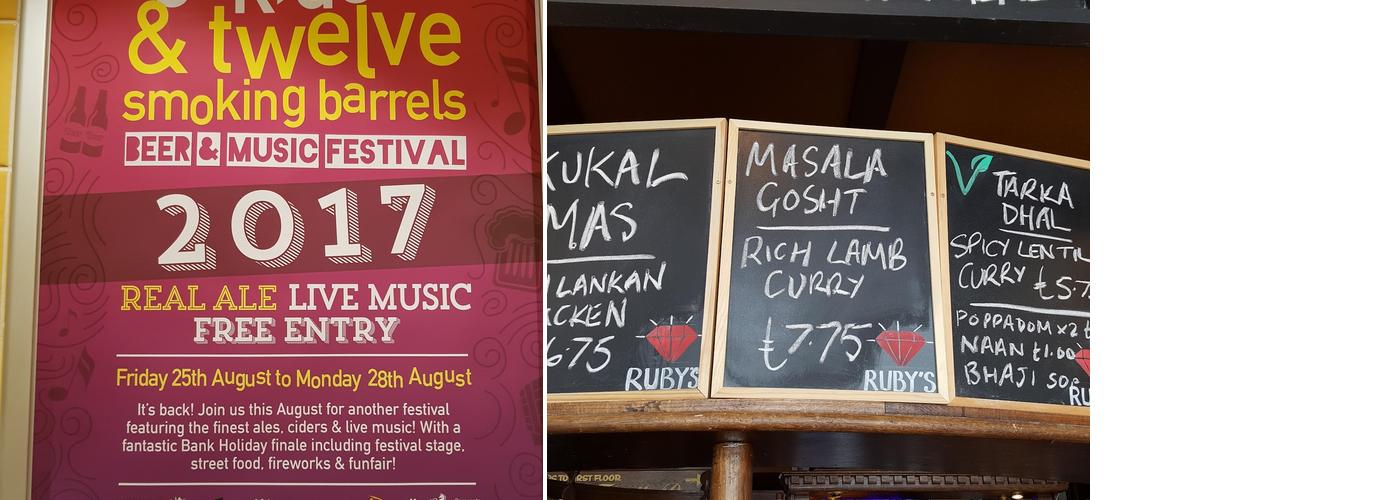 & twelve
smoking barrels
BEER & MUSIC FESTIVAL
2017
REAL ALE LIVE MUSIC
FREE ENTRY
Friday 25th August to Monday 28th August
It's back! Join us this August for another festival
featuring the finest ales, ciders & live music! With a
fantastic Bank Holiday finale including festival stage,
street food, fireworks & funfair!
KUKAL
MAS
LANKAN
6.75
RUBY'S
MASALA
GOSHT
RICH LAMB
CURRY
£7.75
RUBY'S
V TARKA
DHAL
SPICY LENTIL
CURRY £5.7
POPPADOM x2
NAAN £1.00
BHAJI 50p
RU
FIRST FLOOR